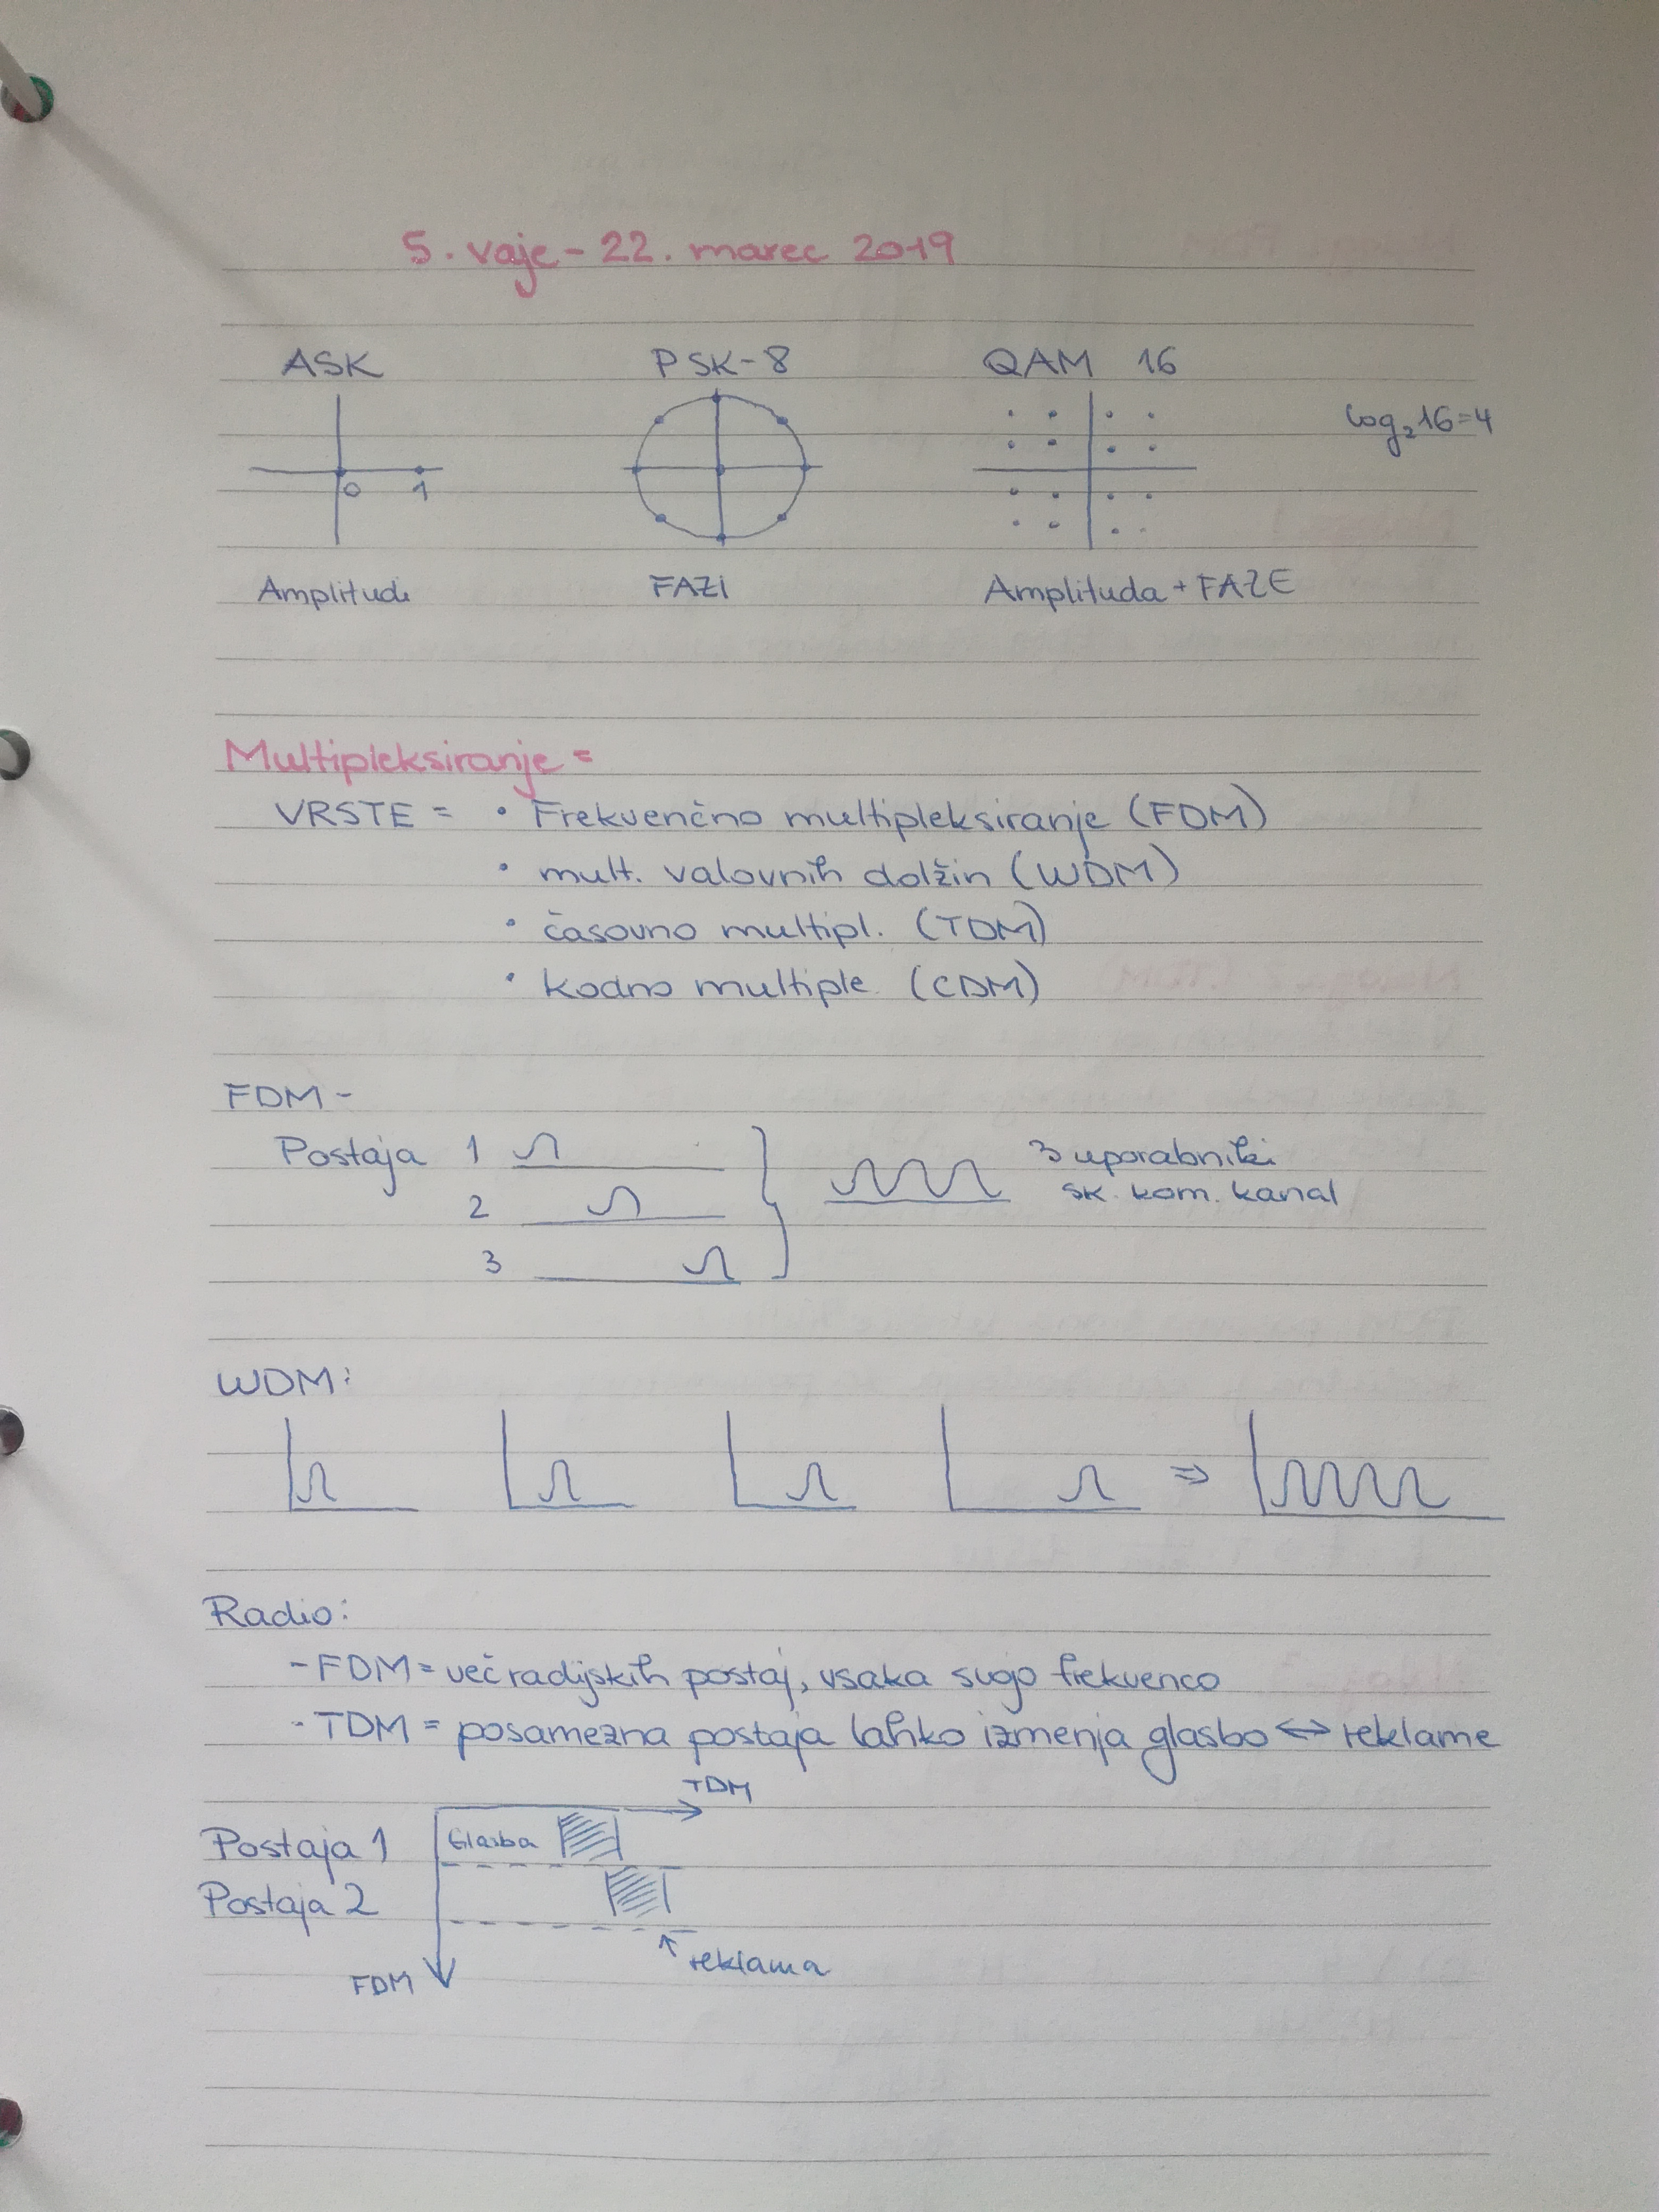 5. vaje - 22. marec 2019
ASK PSK-8 QAM 16
log₂16=4
0 1
Amplitudi FAZI Amplituda + FAZE
Multipleksiranje =
VRSTE = • Frekvenčno multipleksiranje (FDM)
• mult. valovnih dolžin (WDM)
• časovno multipl. (TDM)
• kodno multiple. (CDM)
FDM -
Postaja 1 3 uporabniki
2 sk. kom. kanal
3
WDM:
⇒
Radio:
- FDM = več radijskih postaj, vsaka svojo frekvenco
- TDM = posamezna postaja lahko izmenja glasbo ⇔ reklame
TDM
Postaja 1 Glasba
Postaja 2
reklama
FDM